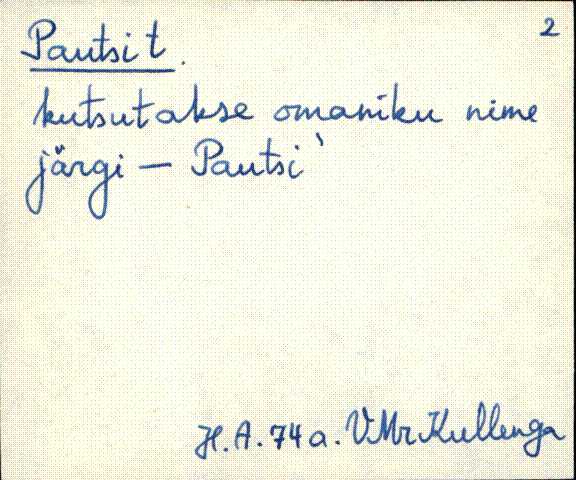 2
Pautsi t.
kutsutakse omaniku nime
järgi — Pautsi`
H.A. 74 a. VMr Kullenga